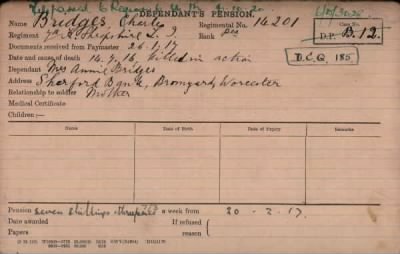 DEPENDANT'S PENSION.
Name Bridges, Chas. Regimental No. 14201
Case No.
Regiment 7th K. Shropshire L. I. Rank Pte
D.P. B.12.
Documents received from Paymaster 26.1.17
Date and cause of death 14.7.16. Killed in action
D.C.Q. 185
Dependant Mrs Annie Bridges
Address Sherford Bank, Bromyard, Worcester
Relationship to soldier Mother
Medical Certificate
Children:—
Name Date of Birth Date of Expiry Name Date of Birth Date of Expiry
Pension seven shillings & threepence a week from 20-2-17.
Date awarded If refused
Papers reason